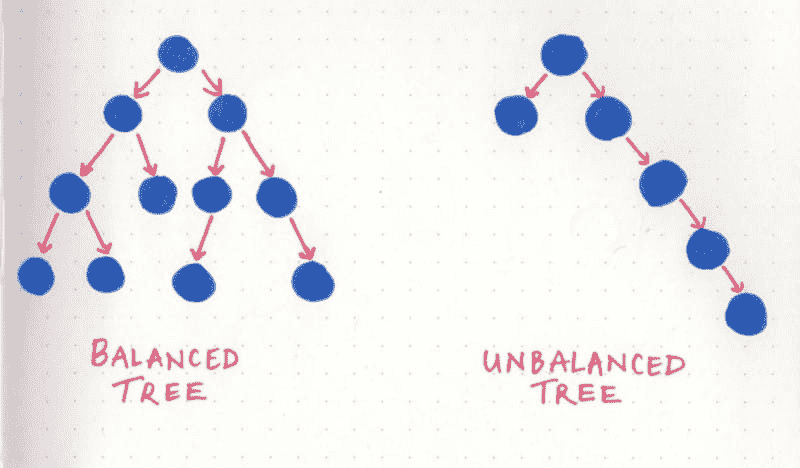 BALANCED
TREE
UNBALANCED
TREE